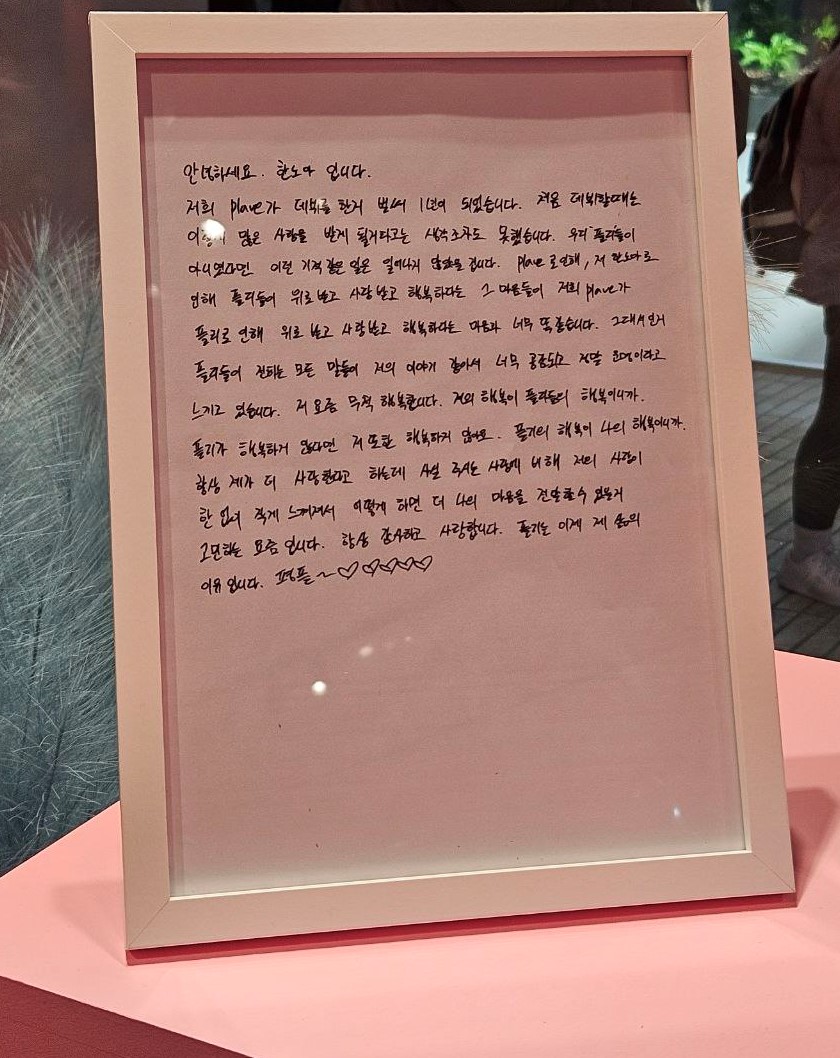 안녕하세요. 한노아 입니다.
저희 plave가 데뷔를 한거 벌써 1년이 되었습니다. 처음 데뷔할때는
이렇게 많은 사랑을 받게 될거라고는 생각조차도 못했습니다. 우리 플리들이
아니였다면 이런 기적같은 일은 일어나지 않았을 겁니다. plave로 인해, 저 한노아로
인해 플리들이 위로 받고 사랑 받고 행복하다는 그 마음들이 저희 plave가
플리로 인해 위로 받고 사랑 받고 행복하다는 마음과 너무 똑같습니다. 그래서인지
플리들이 전하는 모든 말들이 저의 이야기 같아서 너무 공감되고 정말 운명이라고
느끼고 있습니다. 저 요즘 무척 행복합니다. 저의 행복이 플리들의 행복이니까.
플리가 행복하게 않다면 저 또한 행복하게 않아요. 플리의 행복이 나의 행복이니까.
항상 제가 더 사랑한다고 하는데 사실 주시는 사랑에 비해 저의 사랑이
한 없이 작게 느껴져서 어떻게 하면 더 나의 마음을 전달할수 있을지
고민하는 요즘 입니다. 항상 감사하고 사랑합니다. 플리는 이제 제 삶의
이유 입니다. 평플~♡♡♡♡♡